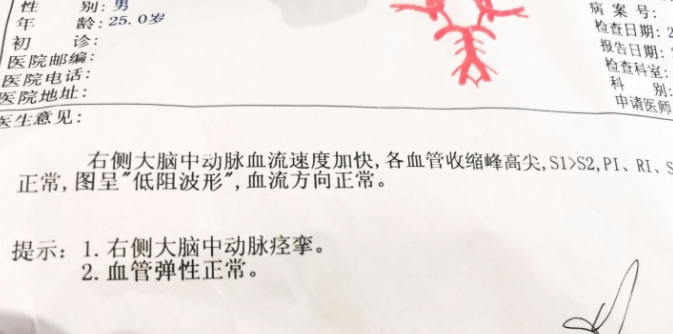 性 别: 男
年 龄: 25.0岁
初 诊:
医院邮编:
医院电话:
医院地址:
病 案 号:
检查日期: 2
报告日期:
检查科室:
科 别:
申请医师
医生意见:
右侧大脑中动脉血流速度加快,各血管收缩峰高尖,S1>S2,PI、RI、S
正常,图呈"低阻波形",血流方向正常。
提示: 1.右侧大脑中动脉痉挛。
2.血管弹性正常。